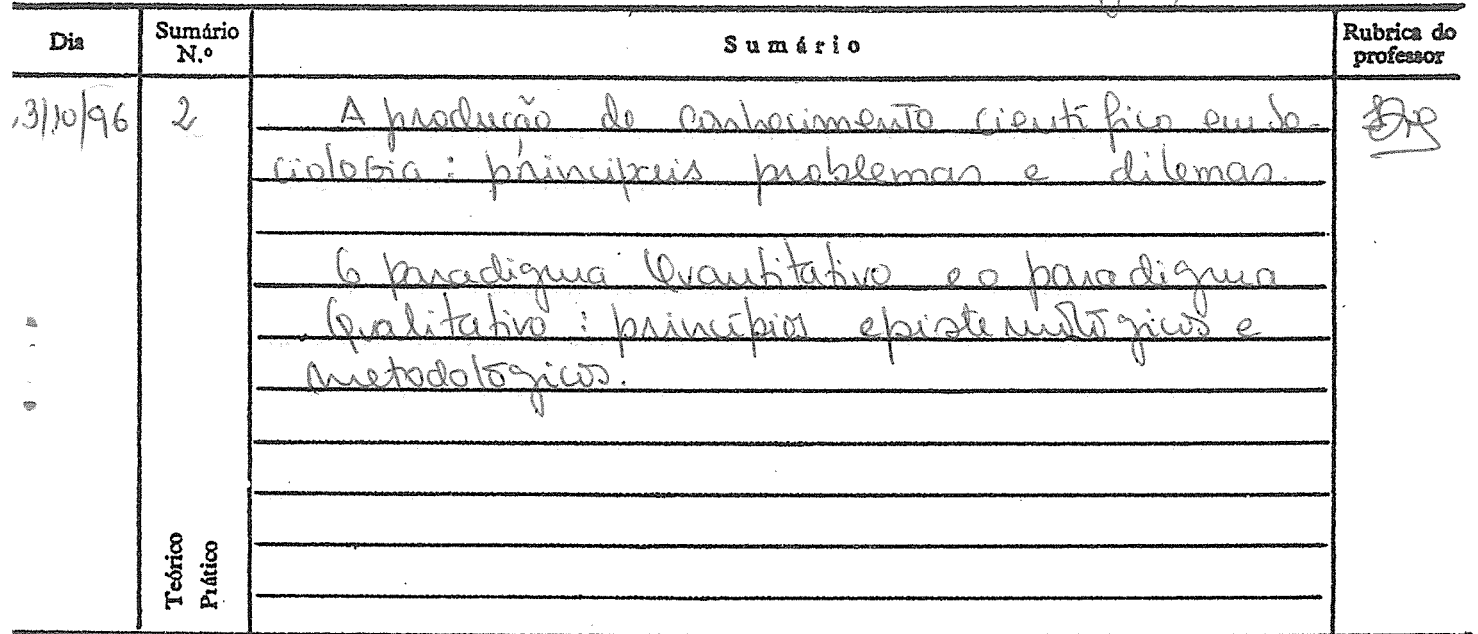 Dia
Sumário N.º
Sumário
Rubrica do professor
3/10/96
2
A produção do conhecimento científico em So-
ciologia: principais problemas e dilemas.
O paradigma Quantitativo e o paradigma
Qualitativo: princípios epistemológicos e
metodológicos.
Teórico
Prático